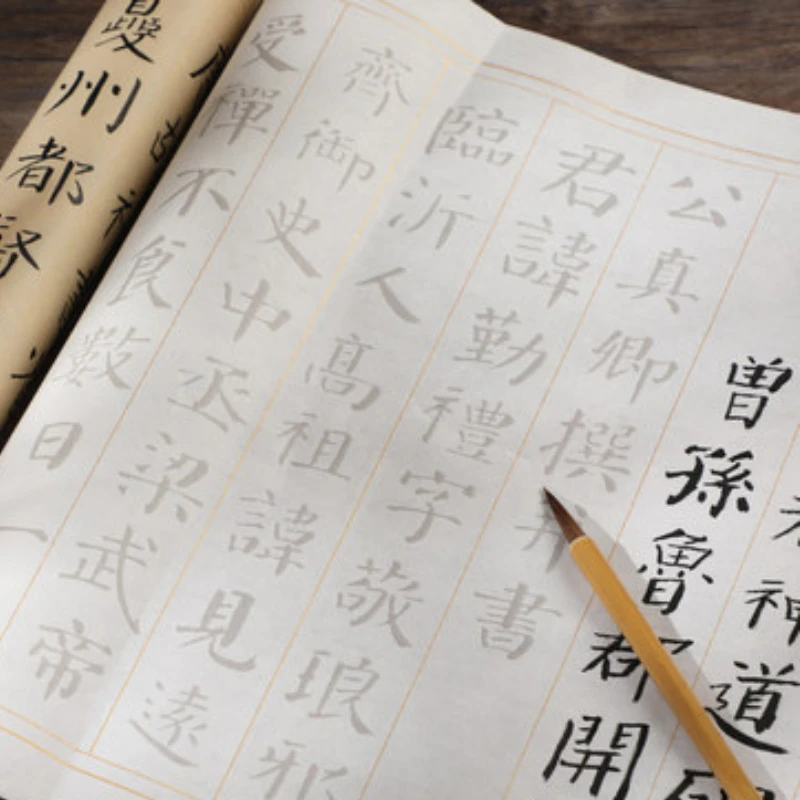 神道
曾孫魯郡開
公真卿撰并書
君諱勤禮字敬琅邪
臨沂人高祖諱見遠
齊御史中丞梁武帝
受禪不食數日一
夔州都督